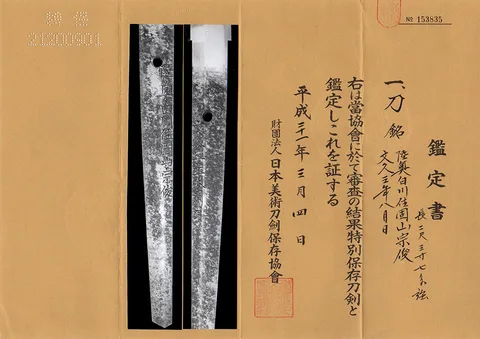 № 153835
鑑定書
一、刀 銘 陸奥白川住固山宗俊
文久三年八月日
長二尺三寸七分強
右は當協會に於て審査の結果特別保存刀剣と
鑑定しこれを証する
平成三十一年三月四日
財團法人 日本美術刀剣保存協會
21200901